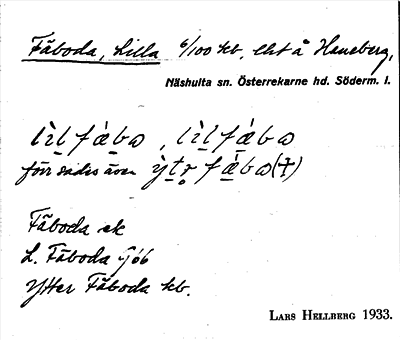 Fäboda, Lilla 6/100 kb. lht å Haneberg,
Näshulta sn. Österrekarne hd. Söderm. l.
lìl fǽba, lìl fǽba
förr sades även ỳtr̥ fǽba (†)
Fäboda ek
L. Fäboda Gjöb
Ytter Fäboda kb.
Lars Hellberg 1933.